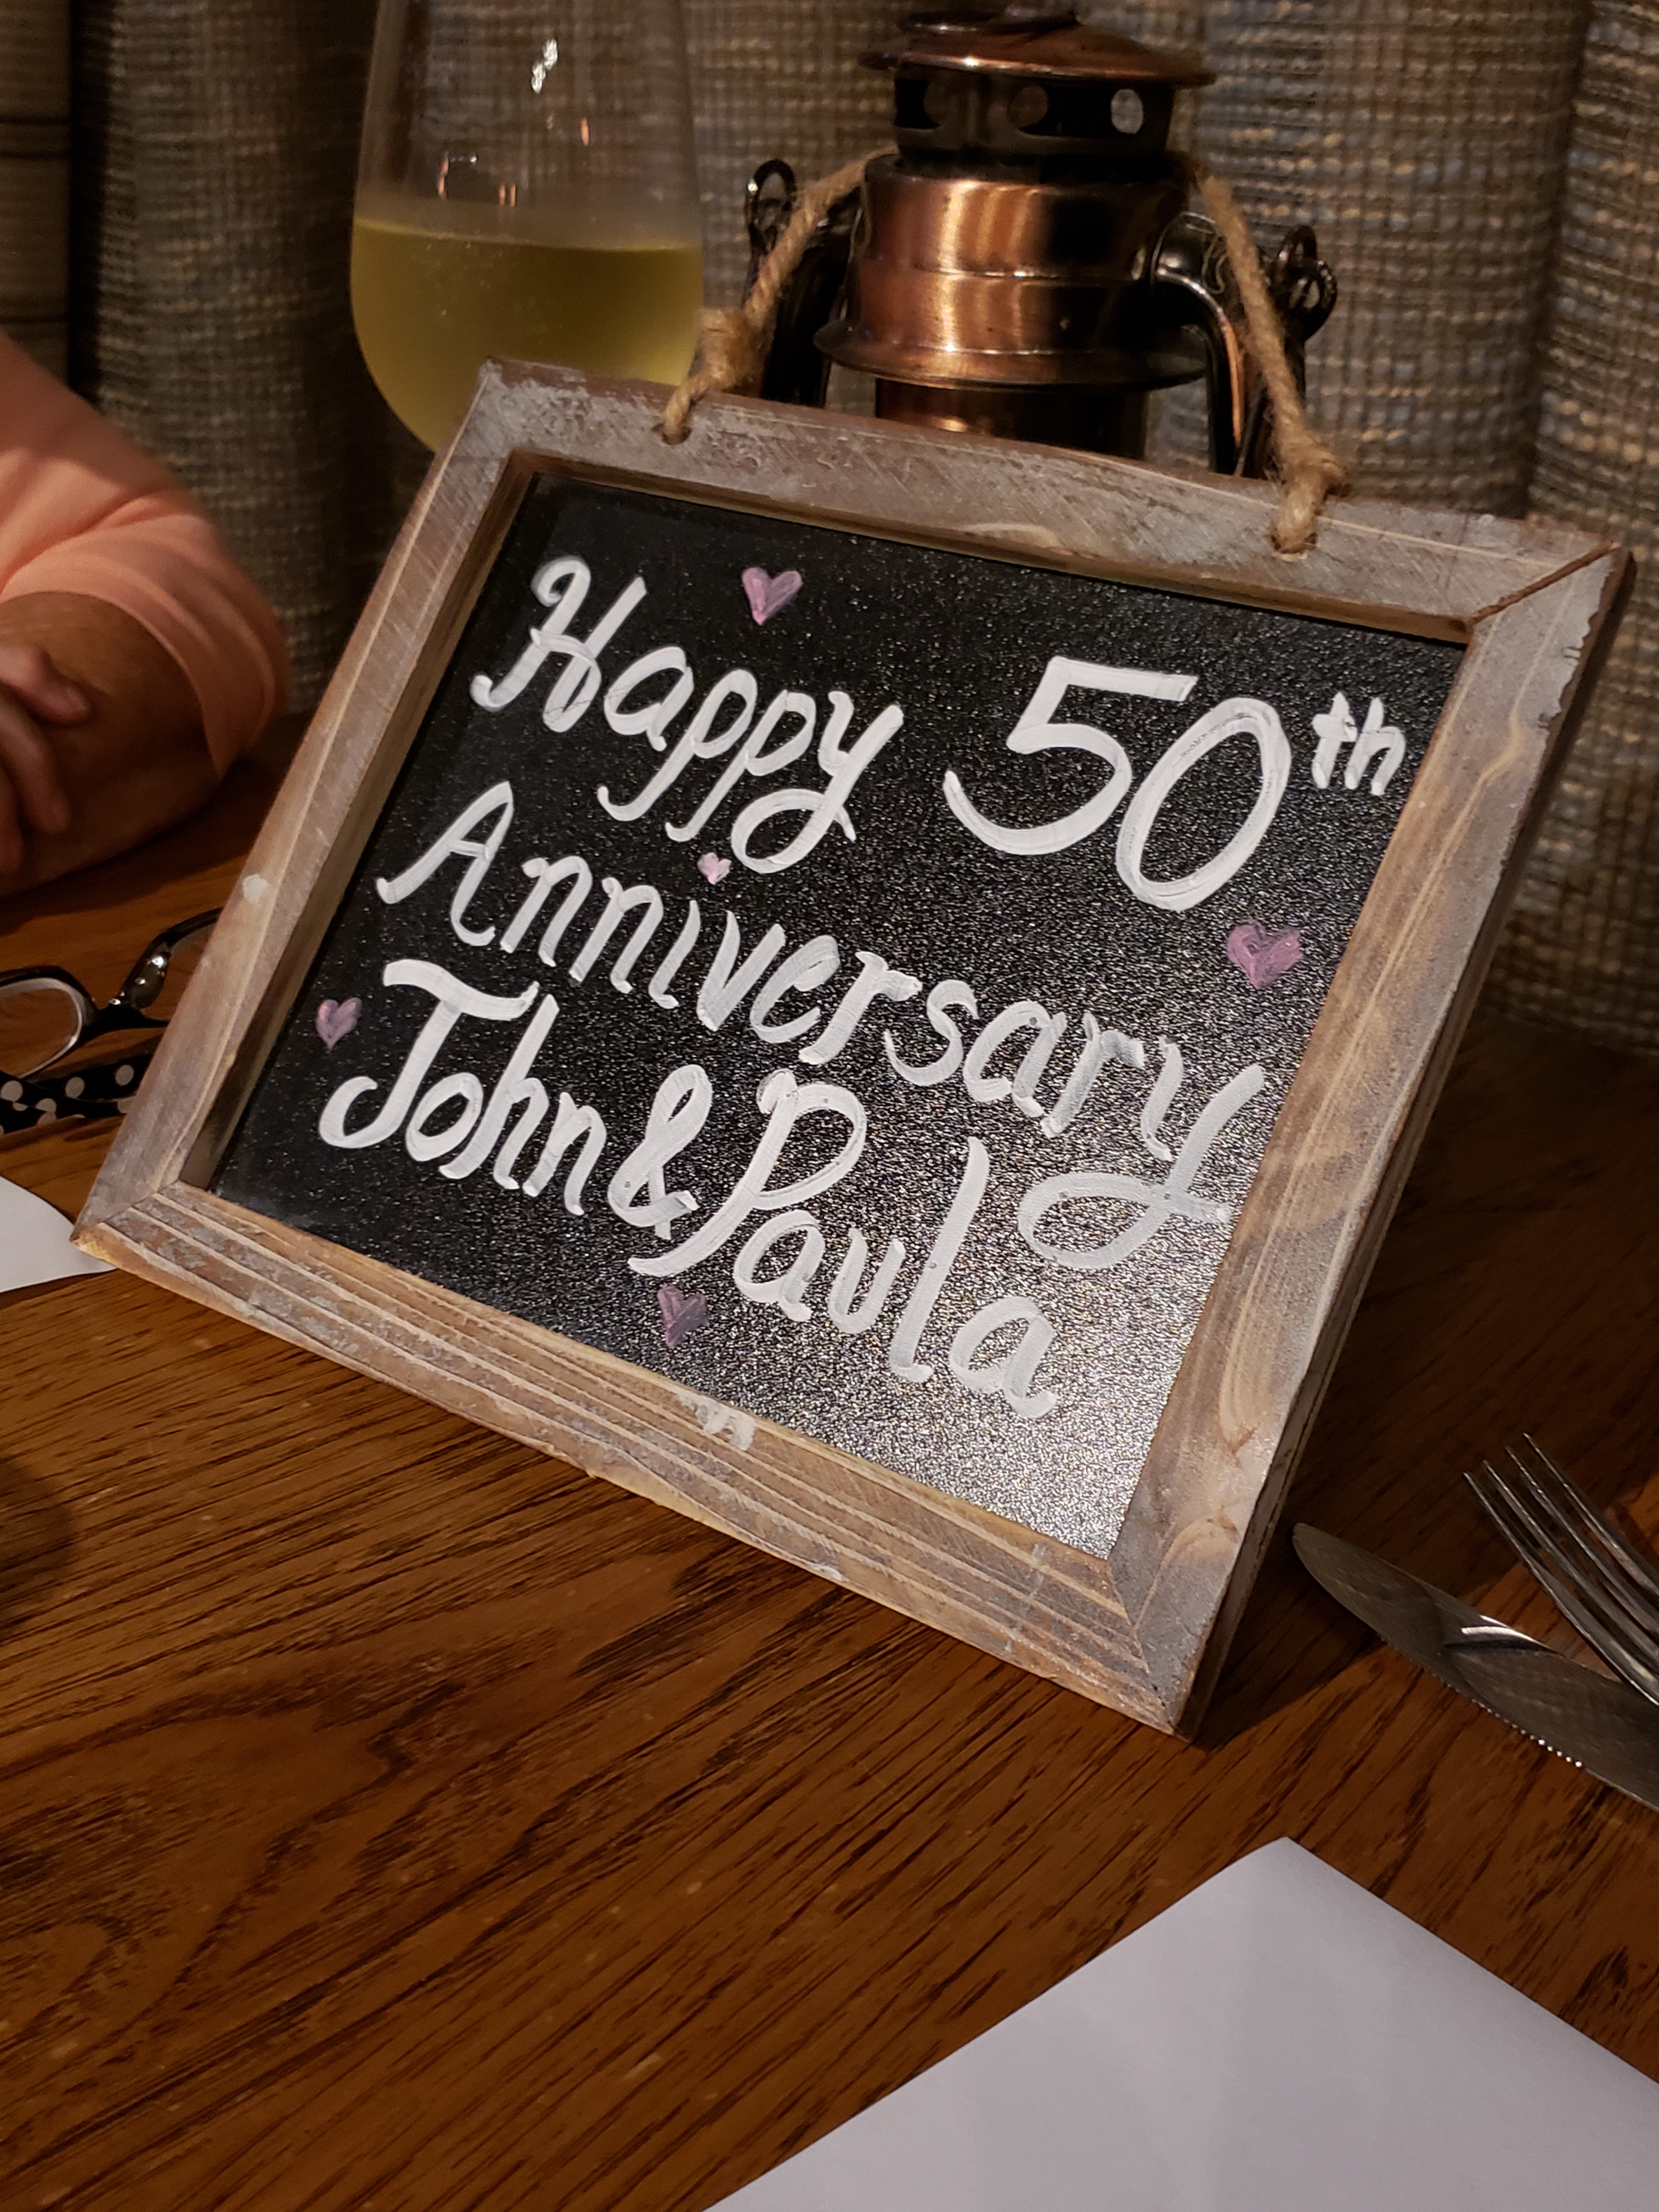 Happy 50th
Anniversary
John & Paula